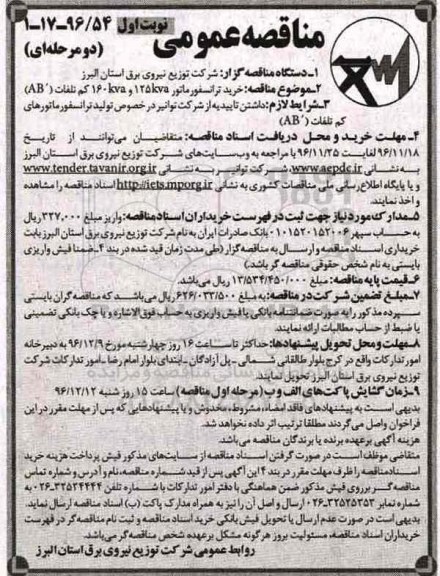 نوبت اول ۹۶/۵۴-۱۷-۱
مناقصه عمومی (دو مرحله‌ای)
۱-دستگاه مناقصه گزار: شرکت توزیع نیروی برق استان البرز
۲-موضوع مناقصه: خرید ترانسفورماتور ۱۲۵kva و ۱۶۰kva کم تلفات (AB')
۳-شرایط لازم: داشتن تاییدیه از شرکت توانیر در خصوص تولید ترانسفورماتورهای
کم تلفات (AB')
۴-مهلت خرید و محل دریافت اسناد مناقصه: متقاضیان می‌توانند از تاریخ
۹۶/۱۱/۱۸ لغایت ۹۶/۱۱/۲۵ با مراجعه به وب‌سایت‌های شرکت توزیع نیروی برق استان البرز
به نشانی www.aepdc.ir، شرکت توانیر به نشانی www.tender.tavanir.org.ir
و یا پایگاه اطلاع‌رسانی ملی مناقصات کشوری به نشانی http://iets.mporg.ir اسناد مناقصه را مشاهده
و اخذ نمایند.
۵-مدارک مورد نیاز جهت ثبت در فهرست خریداران اسناد مناقصه: واریز مبلغ ۳۲۷,۰۰۰ ریال
به حساب سپهر ۰۱۰۱۵۲۰۱۵۲۰۰۶ بانک صادرات ایران به نام شرکت توزیع نیروی برق استان البرز بابت
خریداری اسناد مناقصه و ارسال به مناقصه گزار (طی مدت زمان قید شده در بند ۴-ضمنا فیش واریزی
بایستی به نام شخص حقوقی مناقصه گر باشد.)
۶-قیمت پایه مناقصه: مبلغ ۱۳/۵۳۴/۴۵۰/۰۰۰ ریال می‌باشد.
۷-مبلغ تضمین شرکت در مناقصه: به مبلغ ۶۲۶/۰۳۳/۵۰۰ ریال می‌باشد که مناقصه گران بایستی
سپرده مذکور را به صورت ضمانتنامه بانکی یا فیش واریزی به حساب فوق الاشاره و یا چک بانکی تضمینی
یا ضبط از حساب مطالبات ارائه نمایند.
۸-مهلت و محل تحویل پیشنهادها: حداکثر تا ساعت ۱۶ روز چهارشنبه مورخ ۹۶/۱۲/۹ به دبیرخانه
امور تدارکات واقع در کرج بلوار طالقانی شمالی-پل آزادگان-ابتدای بلوار امام رضا-امور تدارکات شرکت
توزیع نیروی برق استان البرز تحویل نمایند.
۹-زمان گشایش پاکت‌های الف و ب (مرحله اول مناقصه) ساعت ۱۵ روز شنبه ۹۶/۱۲/۱۲
بدیهی است به پیشنهادهای فاقد امضاء، مشروط، مخدوش و یا پیشنهادهایی که پس از مهلت مقرر در این
فراخوان واصل می‌گردند مطلقا ترتیب اثر داده نخواهد شد.
هزینه آگهی برعهده برنده یا برندگان مناقصه می‌باشد.
متقاضی موظف است در صورت گرفتن اسناد مناقصه از سایت‌های مذکور فیش پرداخت هزینه خرید
اسناد مناقصه را ظرف مهلت مقرر در بند ۴ این آگهی پس از قید شماره مناقصه، نام و آدرس و شماره تماس
مناقصه گر برروی فیش مذکور ضمن هماهنگی با دفتر امور تدارکات با شماره تلفن ۳۲۵۲۴۴۴۴-۰۲۶ به
شماره نمابر ۳۲۵۲۵۲۵۳-۰۲۶ ارسال و اصل آن را نیز به همراه مدارک پاکت (ب) اسناد مناقصه ارسال نماید.
بدیهی است در صورت عدم ارسال یا تحویل فیش بانکی خرید اسناد مناقصه و ثبت نام مناقصه گر در فهرست
خریداران اسناد مناقصه، مسئولیت بروز هرگونه مشکل برعهده شخص مناقصه گر می‌باشد.
روابط عمومی شرکت توزیع نیروی برق استان البرز